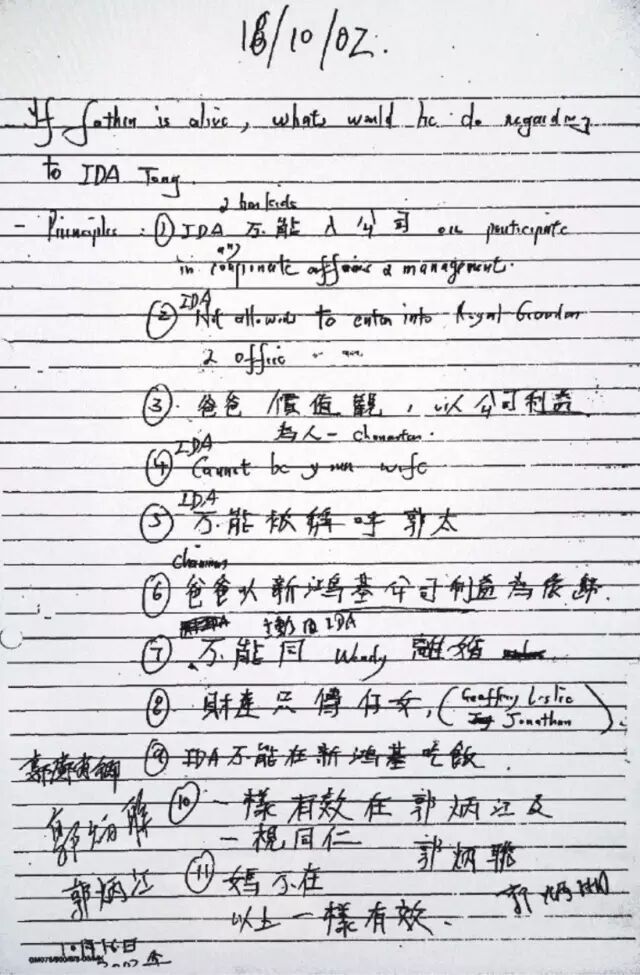 18/10/02.
If father is alive, what would he do regarding
to IDA Tong.
2 her kids
- Principles : ① IDA 不能入公司 or participate
any
in corporate affairs & management.
IDA
② Not allowed to enter into Royal Garden
2 office
③ 爸爸價值觀，以公司利益
為人一 character.
IDA
④ Cannot be your wife
IDA
⑤ 不能被稱呼郭太
chairman
⑥ 爸爸以新鴻基公司利益為依歸.
IDA
⑦ 不能同 Wendy 離婚
⑧ 財產只傳仔女, (Geoffrey Leslie
Jonathan)
⑨ IDA不能在新鴻基吃飯.
⑩ 一樣有效在郭炳江及
一視同仁 郭炳聯
⑪ 媽不在
以上一樣有效.
郭炳江
10月16日
2002年